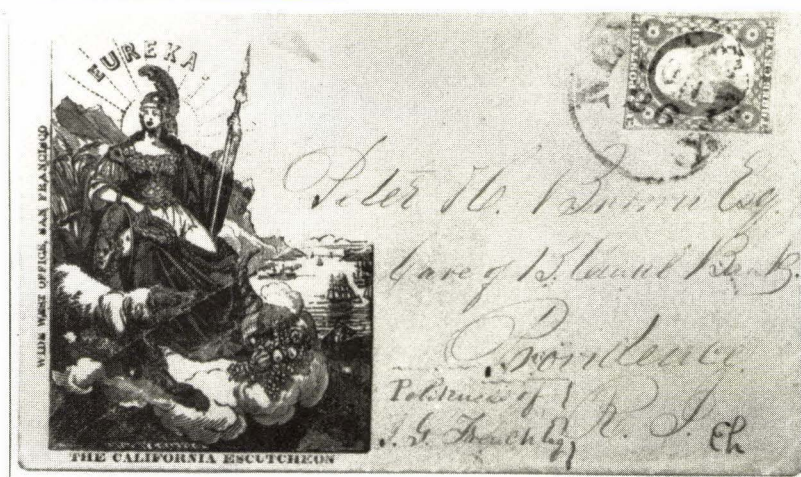 EUREKA.
WIDE WEST OFFICE, SAN FRANCISCO
THE CALIFORNIA ESCUTCHEON
Peter H. Brown Esq.
Care of Bank.
Providence
R. I.
Politeness of
J. G. French Esq